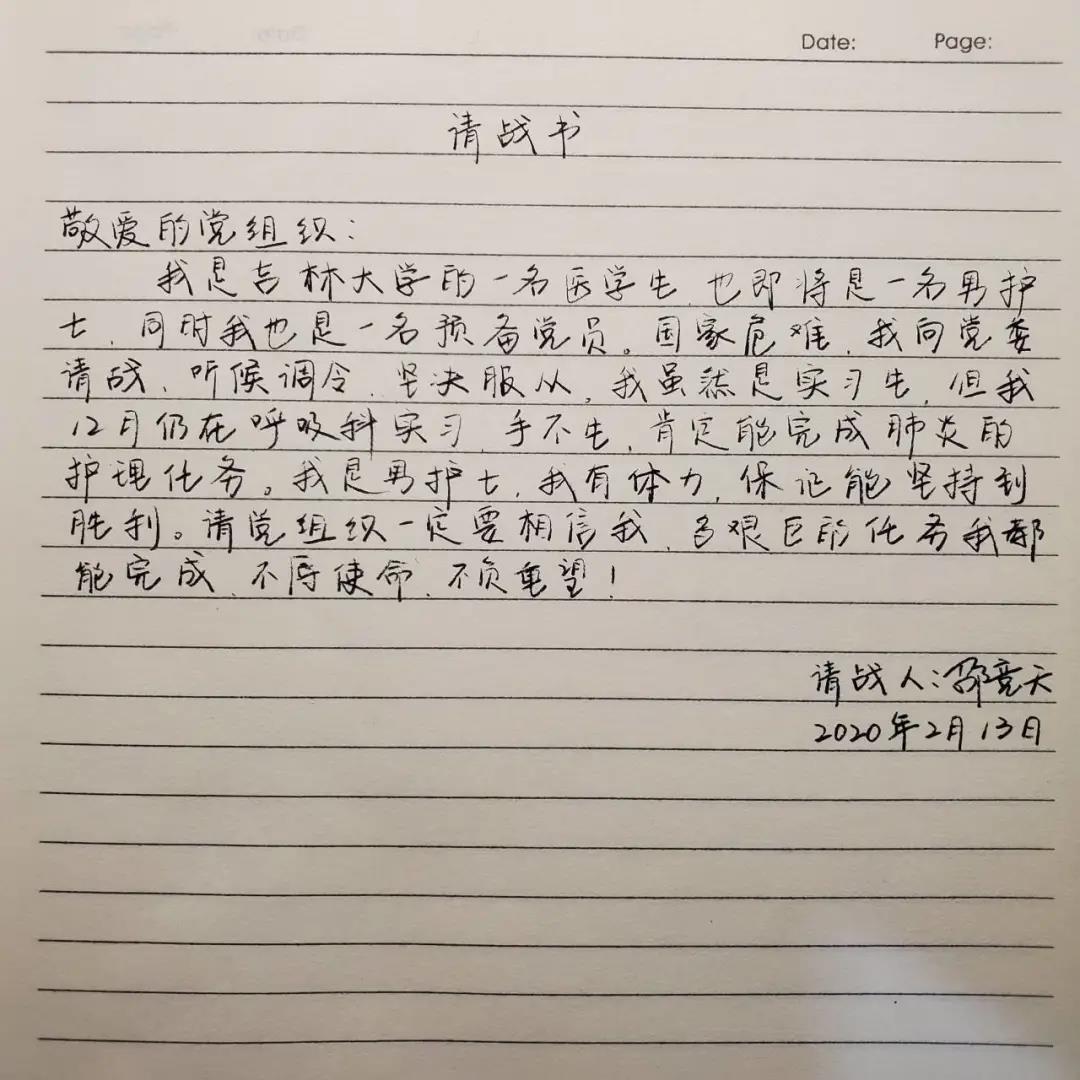 Date: Page:
请战书
敬爱的党组织:
我是吉林大学的一名医学生,也即将是一名男护
士,同时我也是一名预备党员。国家危难,我向党委
请战、听候调令、坚决服从。我虽然是实习生,但我
12月仍在呼吸科实习,手不生,肯定能完成肺炎的
护理任务。我是男护士,我有体力,保证能坚持到
胜利。请党组织一定要相信我,多艰巨的任务我都
能完成,不辱使命、不负重望!
请战人:邵竞天
2020年2月13日